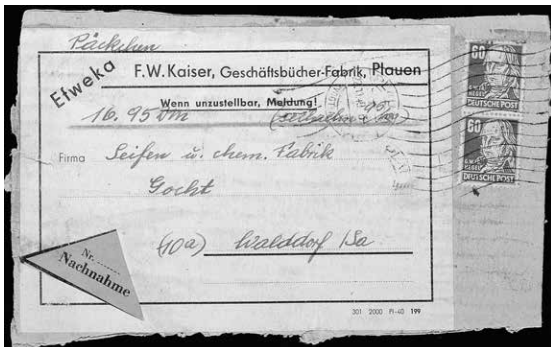 Päckchen
Efweka
F.W. Kaiser, Geschäftsbücher-Fabrik, Plauen
Wenn unzustellbar, Meldung!
16.95 DM
Firma Seifen u. chem. Fabrik
Gocht
(10a) Walddorf Sa
Nr.
Nachnahme
301 2000 Pl-40 199
60
DEUTSCHE POST
60
G.W.F. HEGEL
DEUTSCHE POST